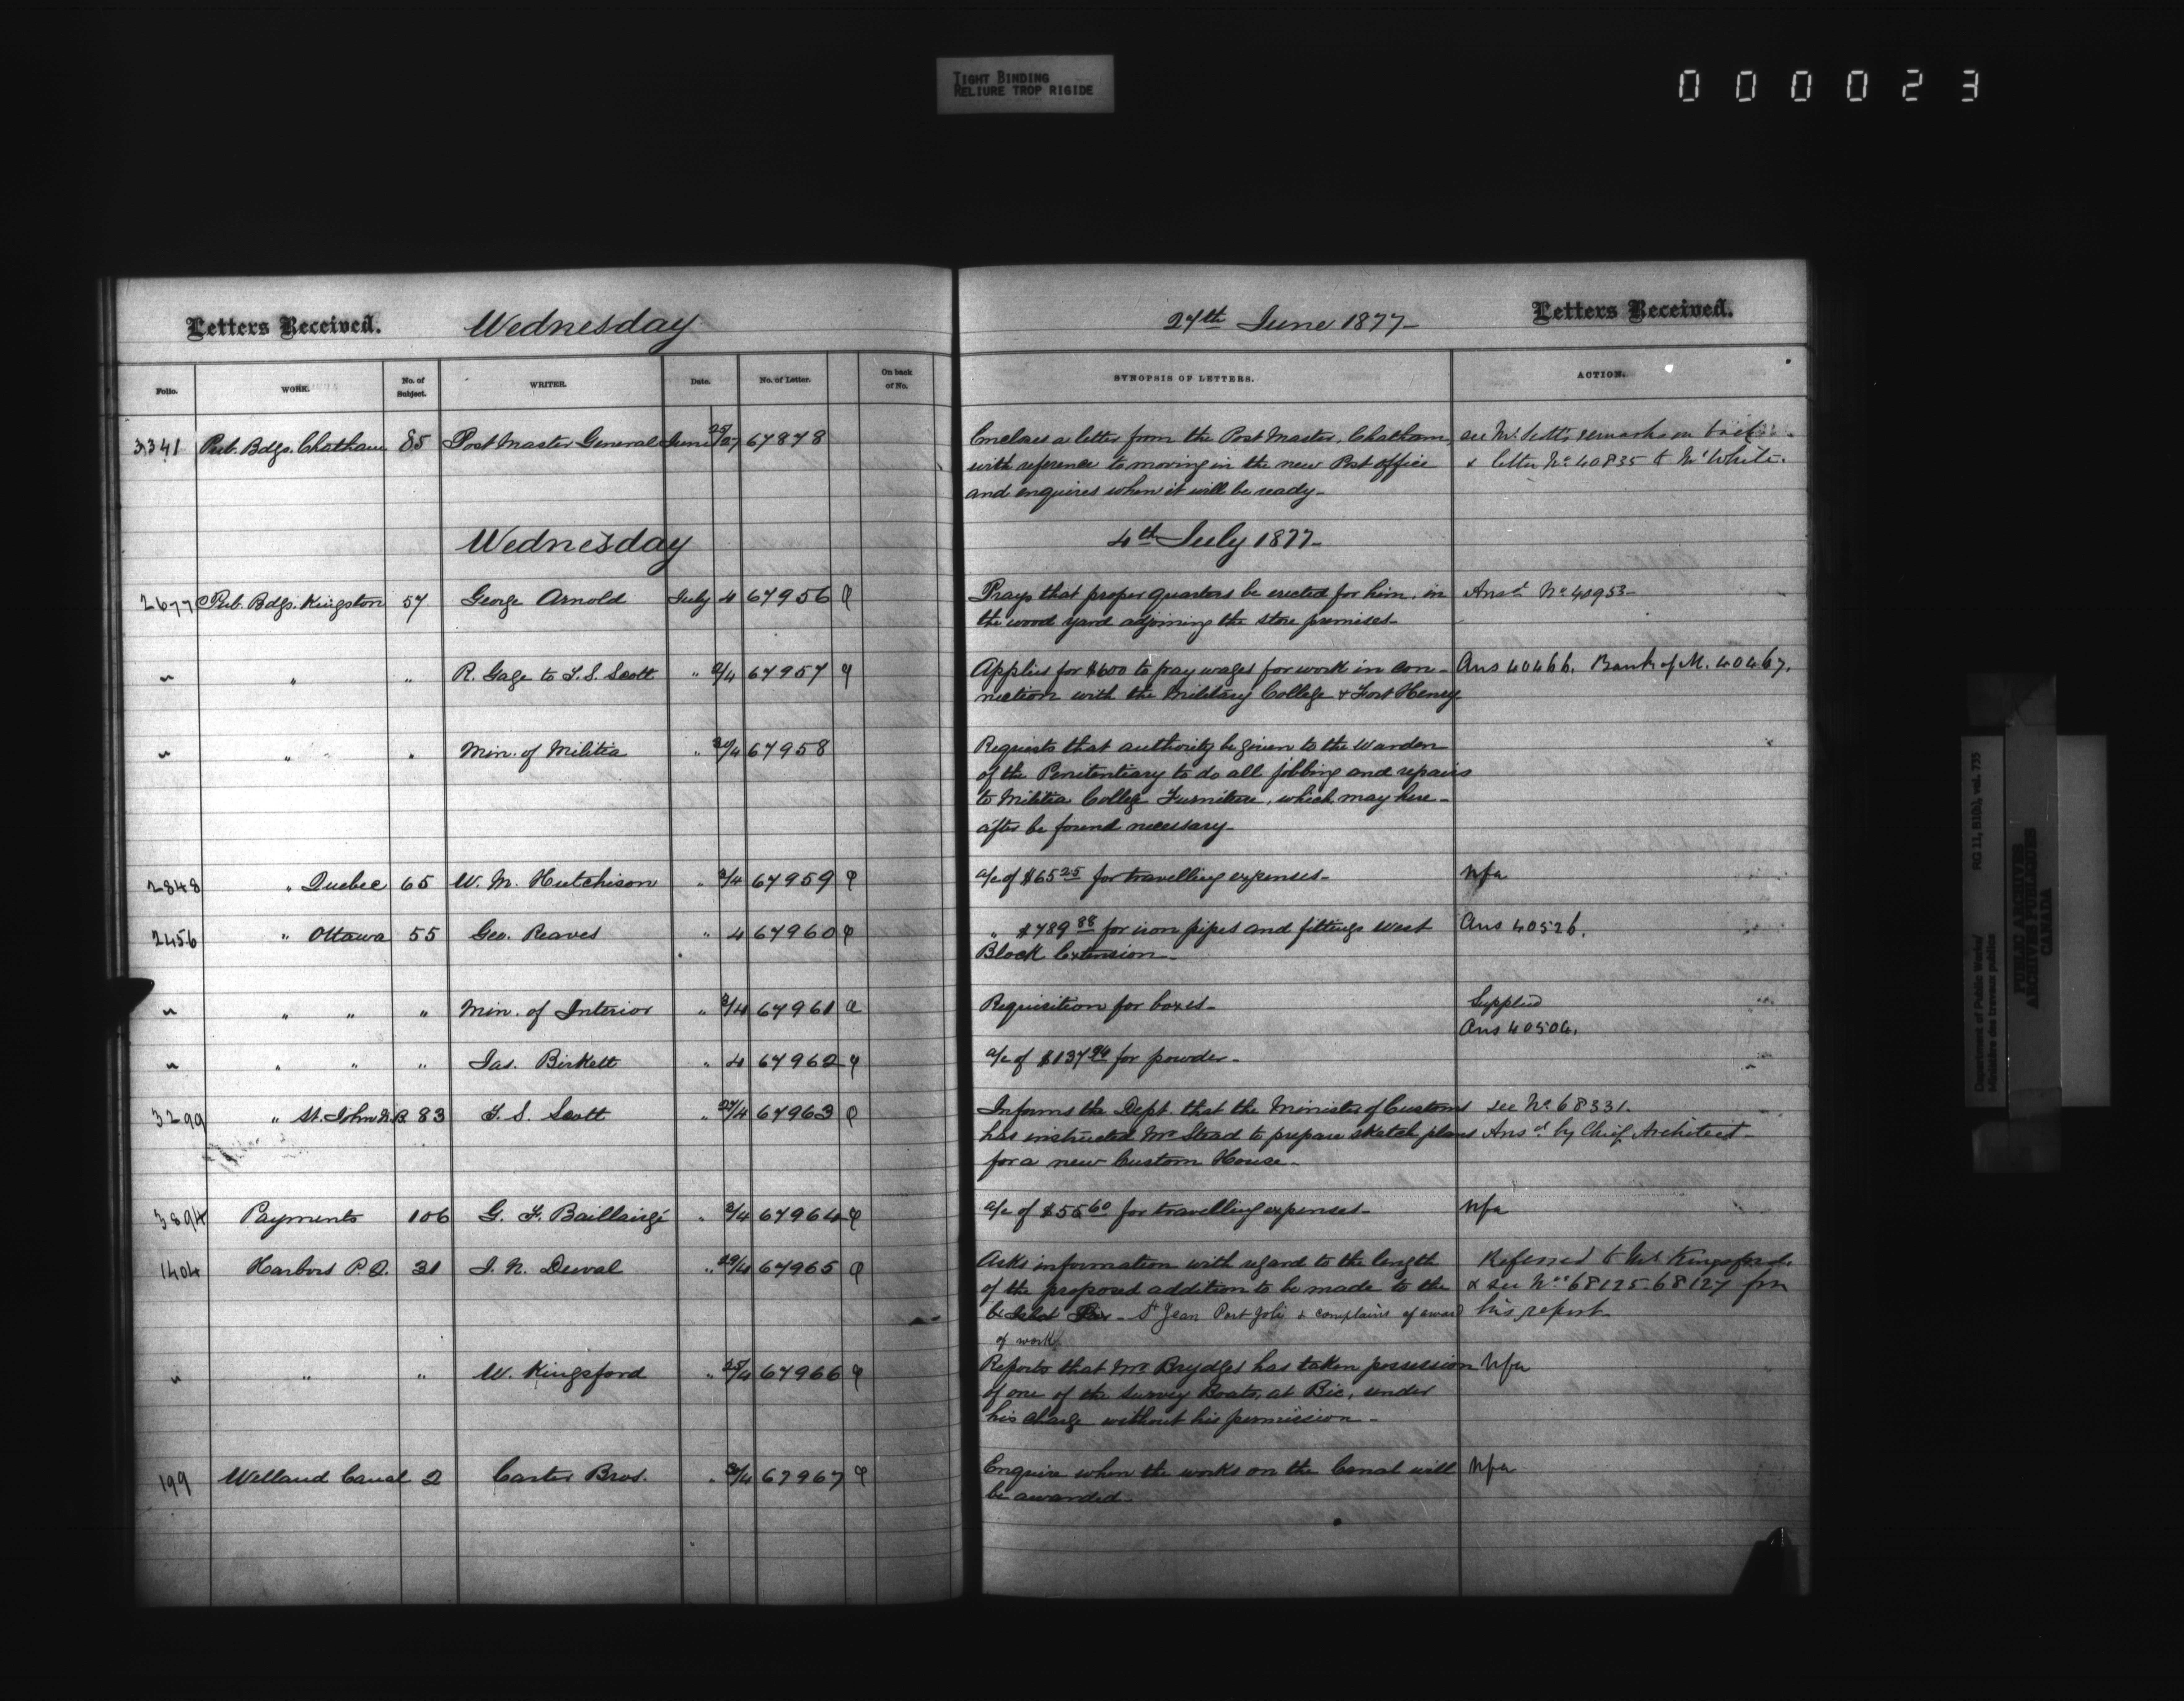 TIGHT BINDING
RELIURE TROP RIGIDE
000023
Letters Received. Wednesday 27th June 1877- Letters Received.
Folio. WORK. No. of Subject. WRITER. Date. No. of Letter. On back of No. SYNOPSIS OF LETTERS. ACTION.
3341 Pub. Bdgs. Chatham 85 Post Master General June 25/27 67878 Encloses a letter from the Post Master, Chatham, see Mr. Scott's remarks on back
with reference to moving in the new Post office & letter No 40835 to Mr White.
and enquires when it will be ready-
Wednesday 4th July 1877-
2677 Pub. Bdgs. Kingston 57 George Arnold July 4 67956 Prays that proper quarters be erected for him, in Ansd No 40953-
the wood yard adjoining the store premises-
" " " R. Gage to T. S. Scott " 2/4 67957 Applies for $600 to pay wages for work in con- Ans 40466. Bank of M. 40467.
nection with the Military College & Fort Henry
" " " Min. of Militia " 30/4 67958 Requests that authority be given to the Warden
of the Penitentiary to do all jobbing and repairs
to Militia College Furniture, which may here-
after be found necessary-
2848 " Quebec 65 W. M. Hutchison " 3/4 67959 a/c of $65 25 for travelling expenses- Nfa
2456 " Ottawa 55 Geo. Reaves " 4 67960 " $789 88 for iron pipes and fittings West Ans 40526.
Block Extension-
" " " " Min. of Interior " 3/4 67961 Requisition for boxes- Supplied
Ans 40504.
" " " " Jas. Birkett " 4 67962 a/c of $137 for powder-
3299 " St. John N.B. 83 T. S. Scott " 27/4 67963 Informs the Dept. that the Minister of Customs see No 68331.
has instructed Mr Stead to prepare sketch plans Ansd by Chief Architect-
for a new Custom House-
3894 Payments 106 G. F. Baillairgé " 3/4 67964 a/c of $55 60 for travelling expenses- Nfa
1404 Harbors P.Q. 31 J. N. Duval " 29/4 67965 Asks information with regard to the length Referred to Mr Kingsford.
of the proposed addition to be made to the & see Nos 68125-68127 for
St Jean Port Joli & complains of award his report-
of work
" " " W. Kingsford " 25/4 67966 Reports that Mr Brydges has taken possession Nfa
of one of the Survey Boats, at Bic, under
his charge without his permission-
199 Welland Canal 2 Carter Bros. " 3/4 67967 Enquire when the works on the Canal will Nfa
be awarded-
Department of Public Works/
Ministère des travaux publics
RG 11, B1(b), vol. 735
PUBLIC ARCHIVES
ARCHIVES PUBLIQUES
CANADA